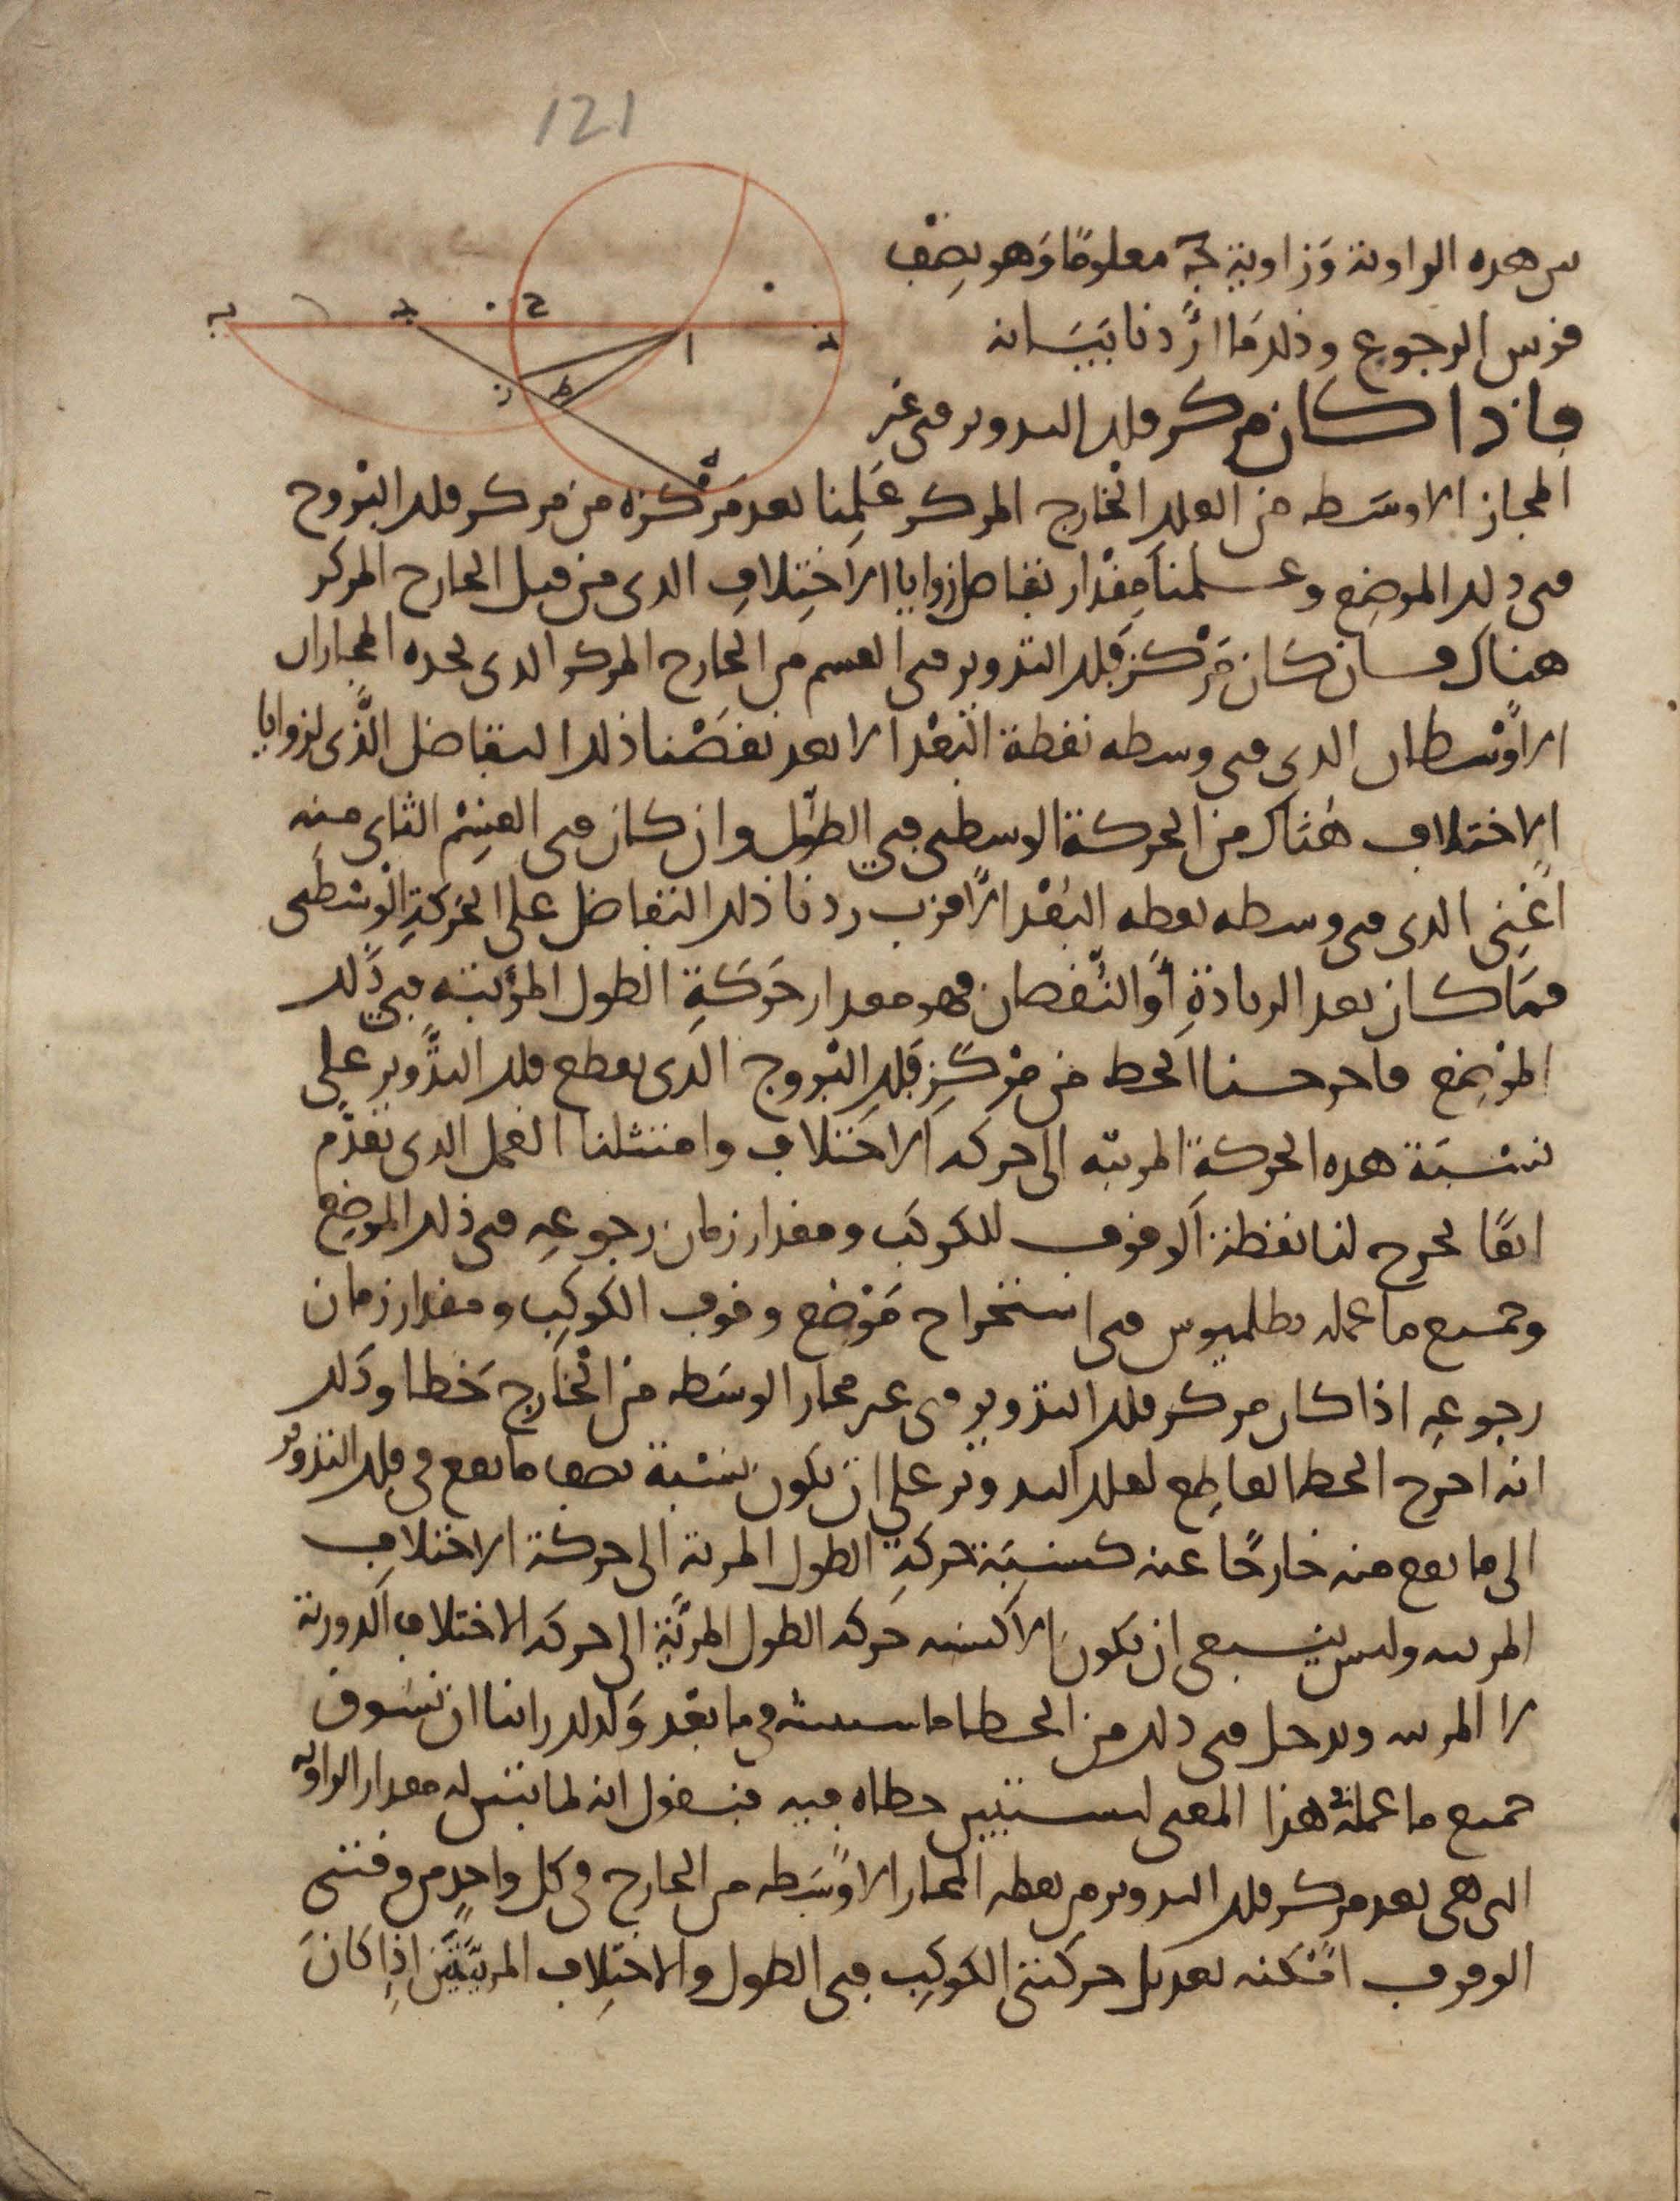 121
بين هذه الزاوية وَزاوية جـ معلومًا وَهو نِصْف
قوس الرجوع وذلك مَا أرَدنا بَيَانه
فاذا كان مركز فلك التدوير في غير
المجاز الاوسَطه من الفلك الخارج المركز عَلِمنا بعد مَرْكزه من مركز فلك البُروج
في ذلك الموضِع وعلمنا مِقْدار تفاضل زوايا الاخِتِلافِ الذي من قبل الخارج المركز
هناك فان كان مَرْكز فَلك التدوير في القسم من الخارج المركز الذي يحده المجازان
الاوْسطان الذي في وسطه نقطة البُعْد الابعد نقصْنا ذلك التفاضل الَّذي لزوايا
الاختلاف هُناك من الحركة الوسطى في الطول وان كان في القِسْم الثاني منه
اعْنِي الذي في وسطه نقطه البُعْد الاقرب زدنا ذلك التفاضل على الحَركَةِ الوسْطى
فمَا كان بعد الزيادةِ أو النُّقصان فهو مقدار حَرَكَةِ الطول المرئيته في ذَلك
الموْضِع فاخرجنا الخط من مَرْكَزِ فَلك البُروج الذي يقطع فلك التدْوير على
نسْبَة هذه الحركةِ المرئيّه الى حركه الاختلاف وامتثلنا العمل الذي تقدَّم
انفًا يخرج لنا نقطة الوقوف للكوكَب ومقدار زمان رجوعِه في ذلك الموضِع
وجميع ما عمله بطلميوس في استخراج مَوْضع وقوف الكوكِب ومقدار زمان
رجوعِه اذا كان مركز فلك التدوير في غير مجاز الوسَطه من الخَارج خَطا وذَلك
انه اخرج الخط القاطِع لفلك التدوير على ان تكون نسْبة نصف ما يقع في فلك التدوير
الى ما يقع منه خارجًا عنه كنسبَة حركةِ الطول المرئية الى حركة الاختلاف
المرئيه وليس ينبغي ان تكون الا كنسبه حَركه الطول المرئيَّةِ الى حركه الاختلاف الدورية
لا المرئيه ويدخل في ذلك من الخطا ما سنبينه في ما بعْد وَلذلك راينا ان نسَوق
جميع ما عملهُ في هذا المعنى ليستبين خطاه فيه فنقول انه لما تبين له مقدار الزاويه
التي هي بعد مركز فلك التدوير من نقطه المجاز الاوْسَطه من الخارج في كل واحدٍ من وقتي
الوقوف امْكنه تعديل حركتي الكوكِب في الطول والاختِلاف المرئيَّتَيْن اذِا كانَ